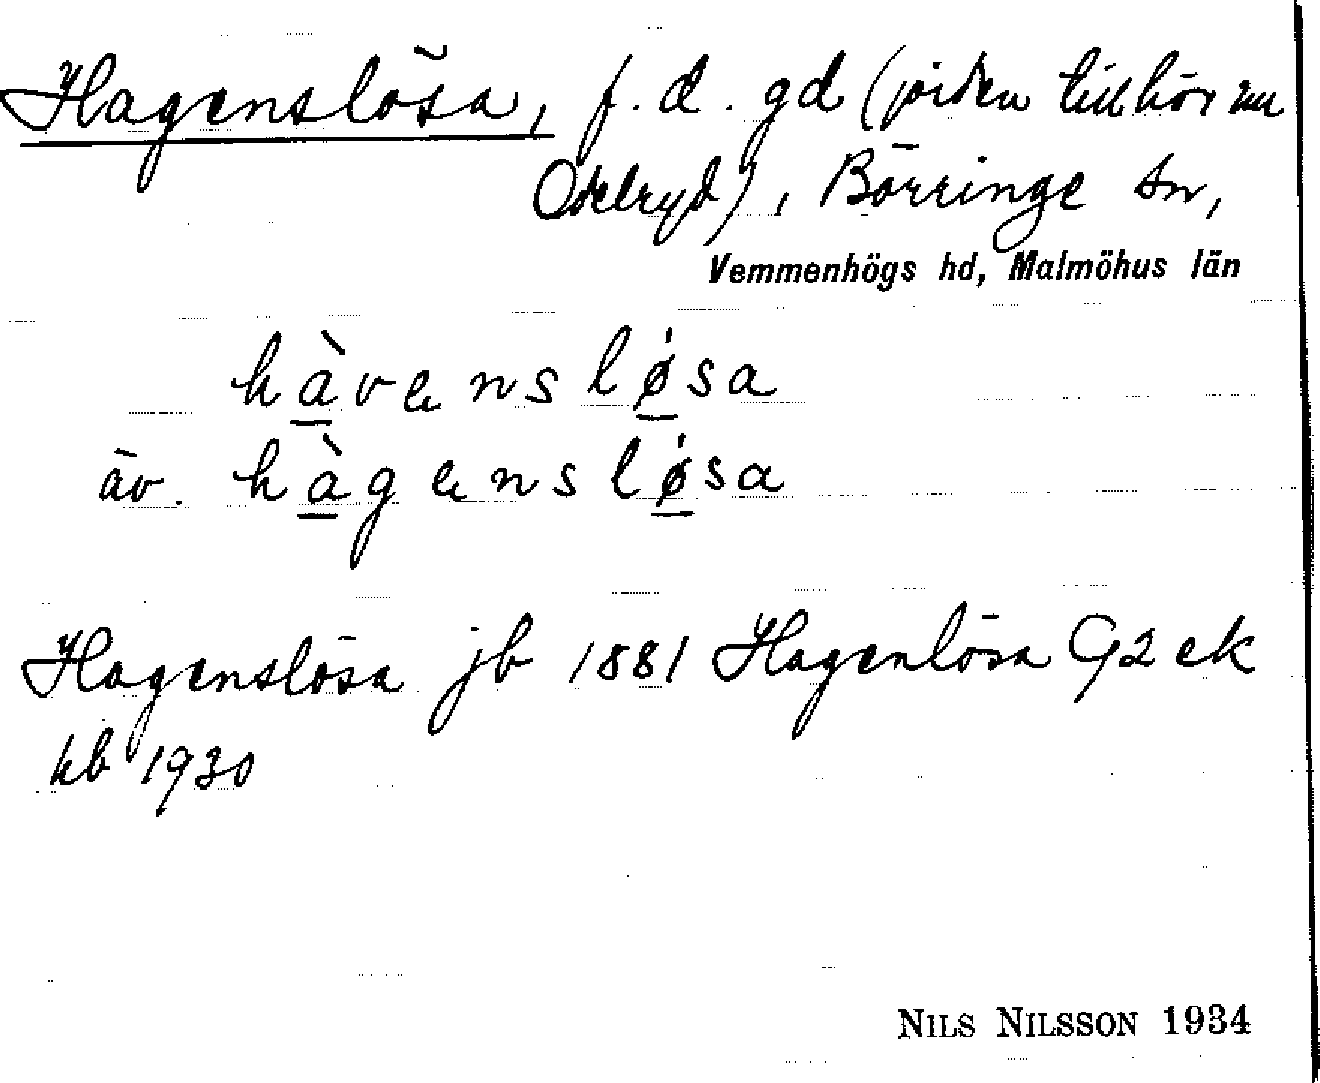 Hagenslösa, f. d. gd (jorden tillhör nu
Odelryd), Börringe sn,
Vemmenhögs hd, Malmöhus län
hàvens løsa
äv. hàgens løsa
Hagenslösa jb 1881 Hagenlösa G2 ek
kb 1930
NILS NILSSON 1934